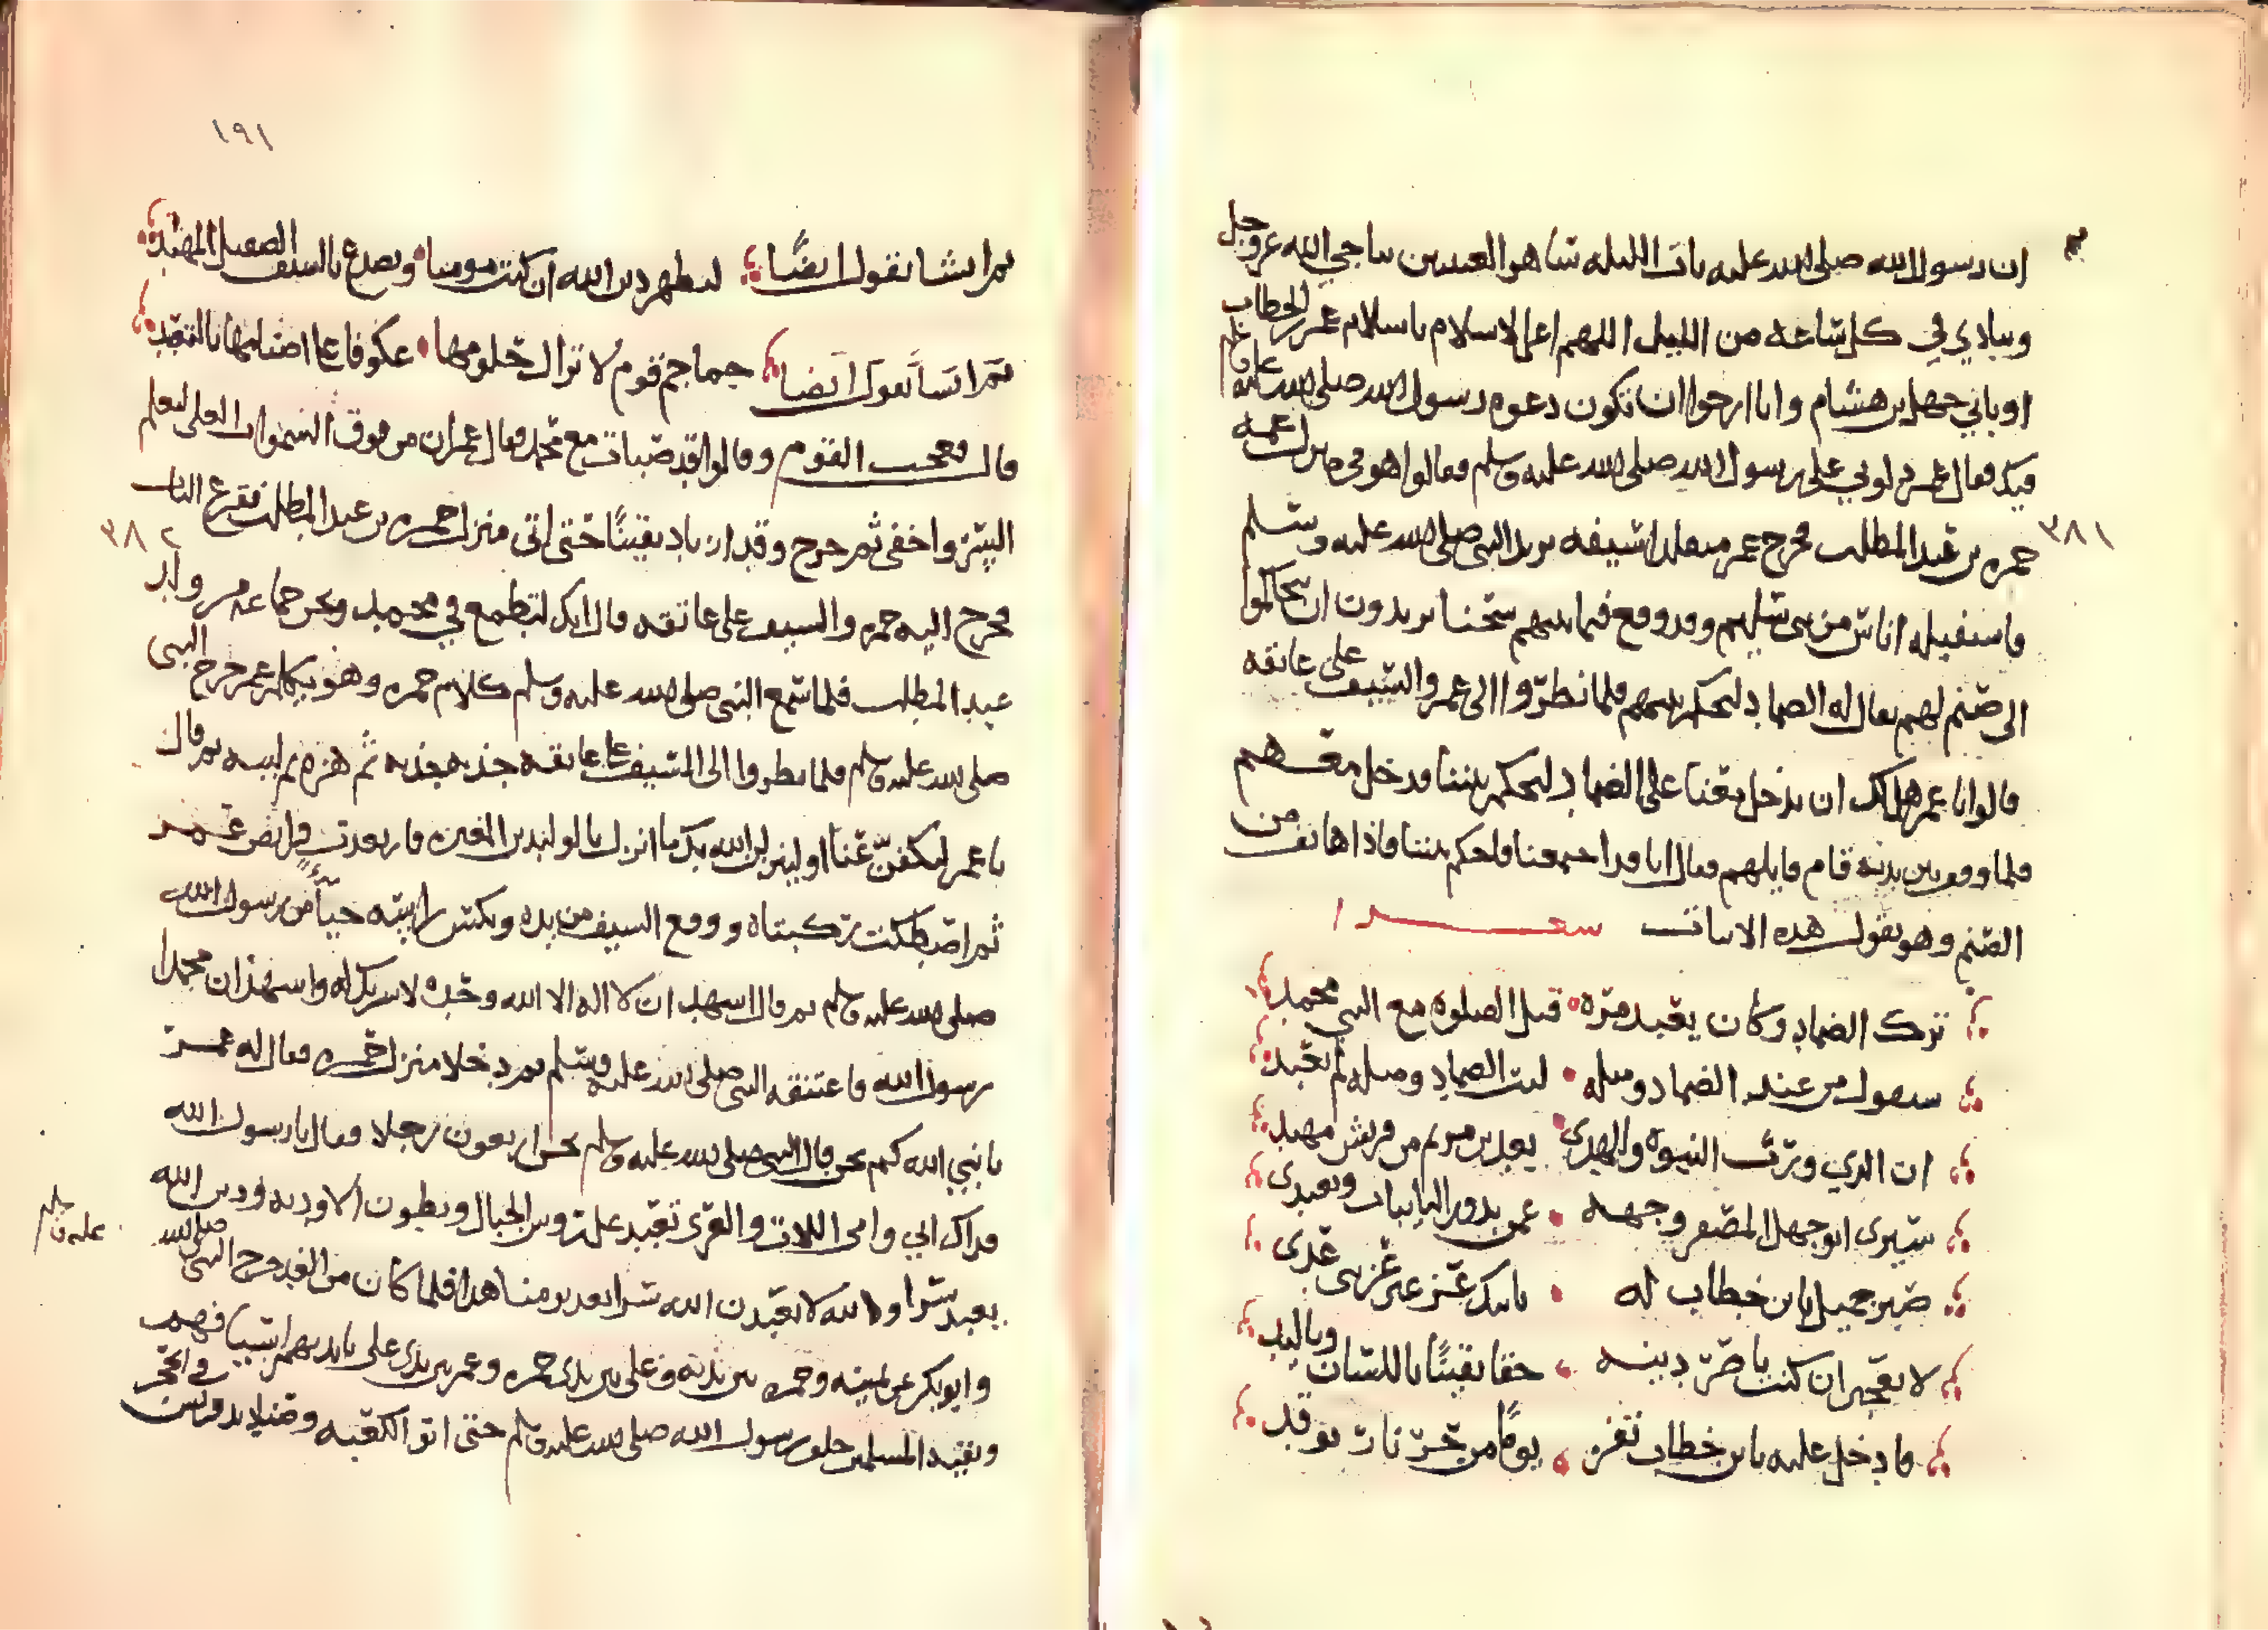 ان رسول الله صلى الله عليه بات الليله ساهر العينين يناجي الله عز وجل
وينادي في كل ساعه من الليل اللهم اعز الاسلام باسلام عمر بن الخطاب
او بابي جهل بن هشام وانا ارجوا ان تكون دعوه رسول الله صلى الله عليه وسلم
فيك فقال عمر دلوني على رسول الله صلى الله عليه وسلم فقالوا هو في منزل عمه
٣٨١
حمزه بن عبد المطلب فخرج عمر متقلدا سيفه يريد النبي صلى الله عليه وسلم
فاستقبله اناس من بني سليم وقد وقع فيما بينهم يريدون ان يتحاكموا
الى صنم لهم يقال له الضماد ليحكم بينهم فلما نظروا الى عمر والسيف على عاتقه
قالوا يا عمر هل لك ان تدخل معنا على الضماد ليحكم بيننا فدخل معهم
فلما وقف بين يديه قام قايلهم فقال انا قد اجتمعنا فاحكم بيننا فاذا هاتف من
الصنم وهو يقول هذه الابيات
ترك الضماد وكان يعبد مره قبل الصلوه مع النبي محمد
سيقول من عبد الضماد ومثله ليت الضماد ومثله لم يعبد
ان الذي ورث النبوه والهدى بعد بن مريم من قريش مهتد
سيرى ابو جهل المصفر وجهه عن
يا بن خطاب له ياتيك عز غير عز بني عدي
لا تعجبن ان كنت ناصر دينه حقا يقينا باللسان وباليد
فادخل عليه يا بن خطاب تفز يوما من حر نار توقد
١٩١
ثم انشا يقول ايضا ليظهر دين الله ان كنت مومنا وتصدع بالسيف الصقيل المهند
ثم انشا يقول ايضا جماجم قوم لا تزال حلومها عكوفا على اصنامها بالتعبد
قال فعجب القوم وقالوا قد صبات مع محمد فقال عمر ان من فوق السموات العلى ليعلم
السر واخفى ثم خرج وقد ازداد يقينا حتى اتى منزل حمزه بن عبد المطلب فقرع الباب
٣٨٢
فخرج اليه حمزه والسيف على عاتقه قال انك لتطمع في محمد ونحن جماعه من ولد
عبد المطلب فلما سمع النبي صلى الله عليه وسلم كلام حمزه وهو يكلم عمر خرج النبي
صلى الله عليه وسلم فلما نظروا الى السيف على عاتقه جذبه جذبه ثم هزه ثم لببه ثم قال
يا عمر لتكفن عنا او لينزلن الله بك ما انزل بالوليد بن المغيره فارتعدت فرايص عمر
ثم اصطكت ركبتاه ووقع السيف من يده ونكس راسه حياء من رسول الله
صلى الله عليه وسلم ثم قال اشهد ان لا اله الا الله وحده لا شريك له واشهد ان محمدا
رسول الله فاعتنقه النبي صلى الله عليه وسلم ثم دخلا منزل حمزه فقال له عمر
يا نبي الله كم نحن قال النبي صلى الله عليه وسلم نحن اربعون رجلا فقال يا رسول الله
فداك ابي وامي اللات والعزى تعبد على روس الجبال وبطون الاوديه ودين الله
يعبد سرا والله لا يعبدن الله سرا بعد يومنا هذا فلما كان من الغد خرج النبي صلى الله
عليه وسلم
وابو بكر عن يمينه وحمزه بين يديه وعلي بين يدي حمزه وعمر بين يدي علي
المسلمين خلف رسول الله صلى الله عليه وسلم حتى اتوا الكعبه وصناديد قريش في الحجر